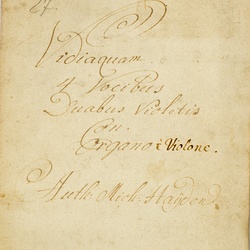 27.
Vidiaquam
4 Vocibus
Duabus Violitis
Con
Organo è Violone.
Auth: Mich: Hayden